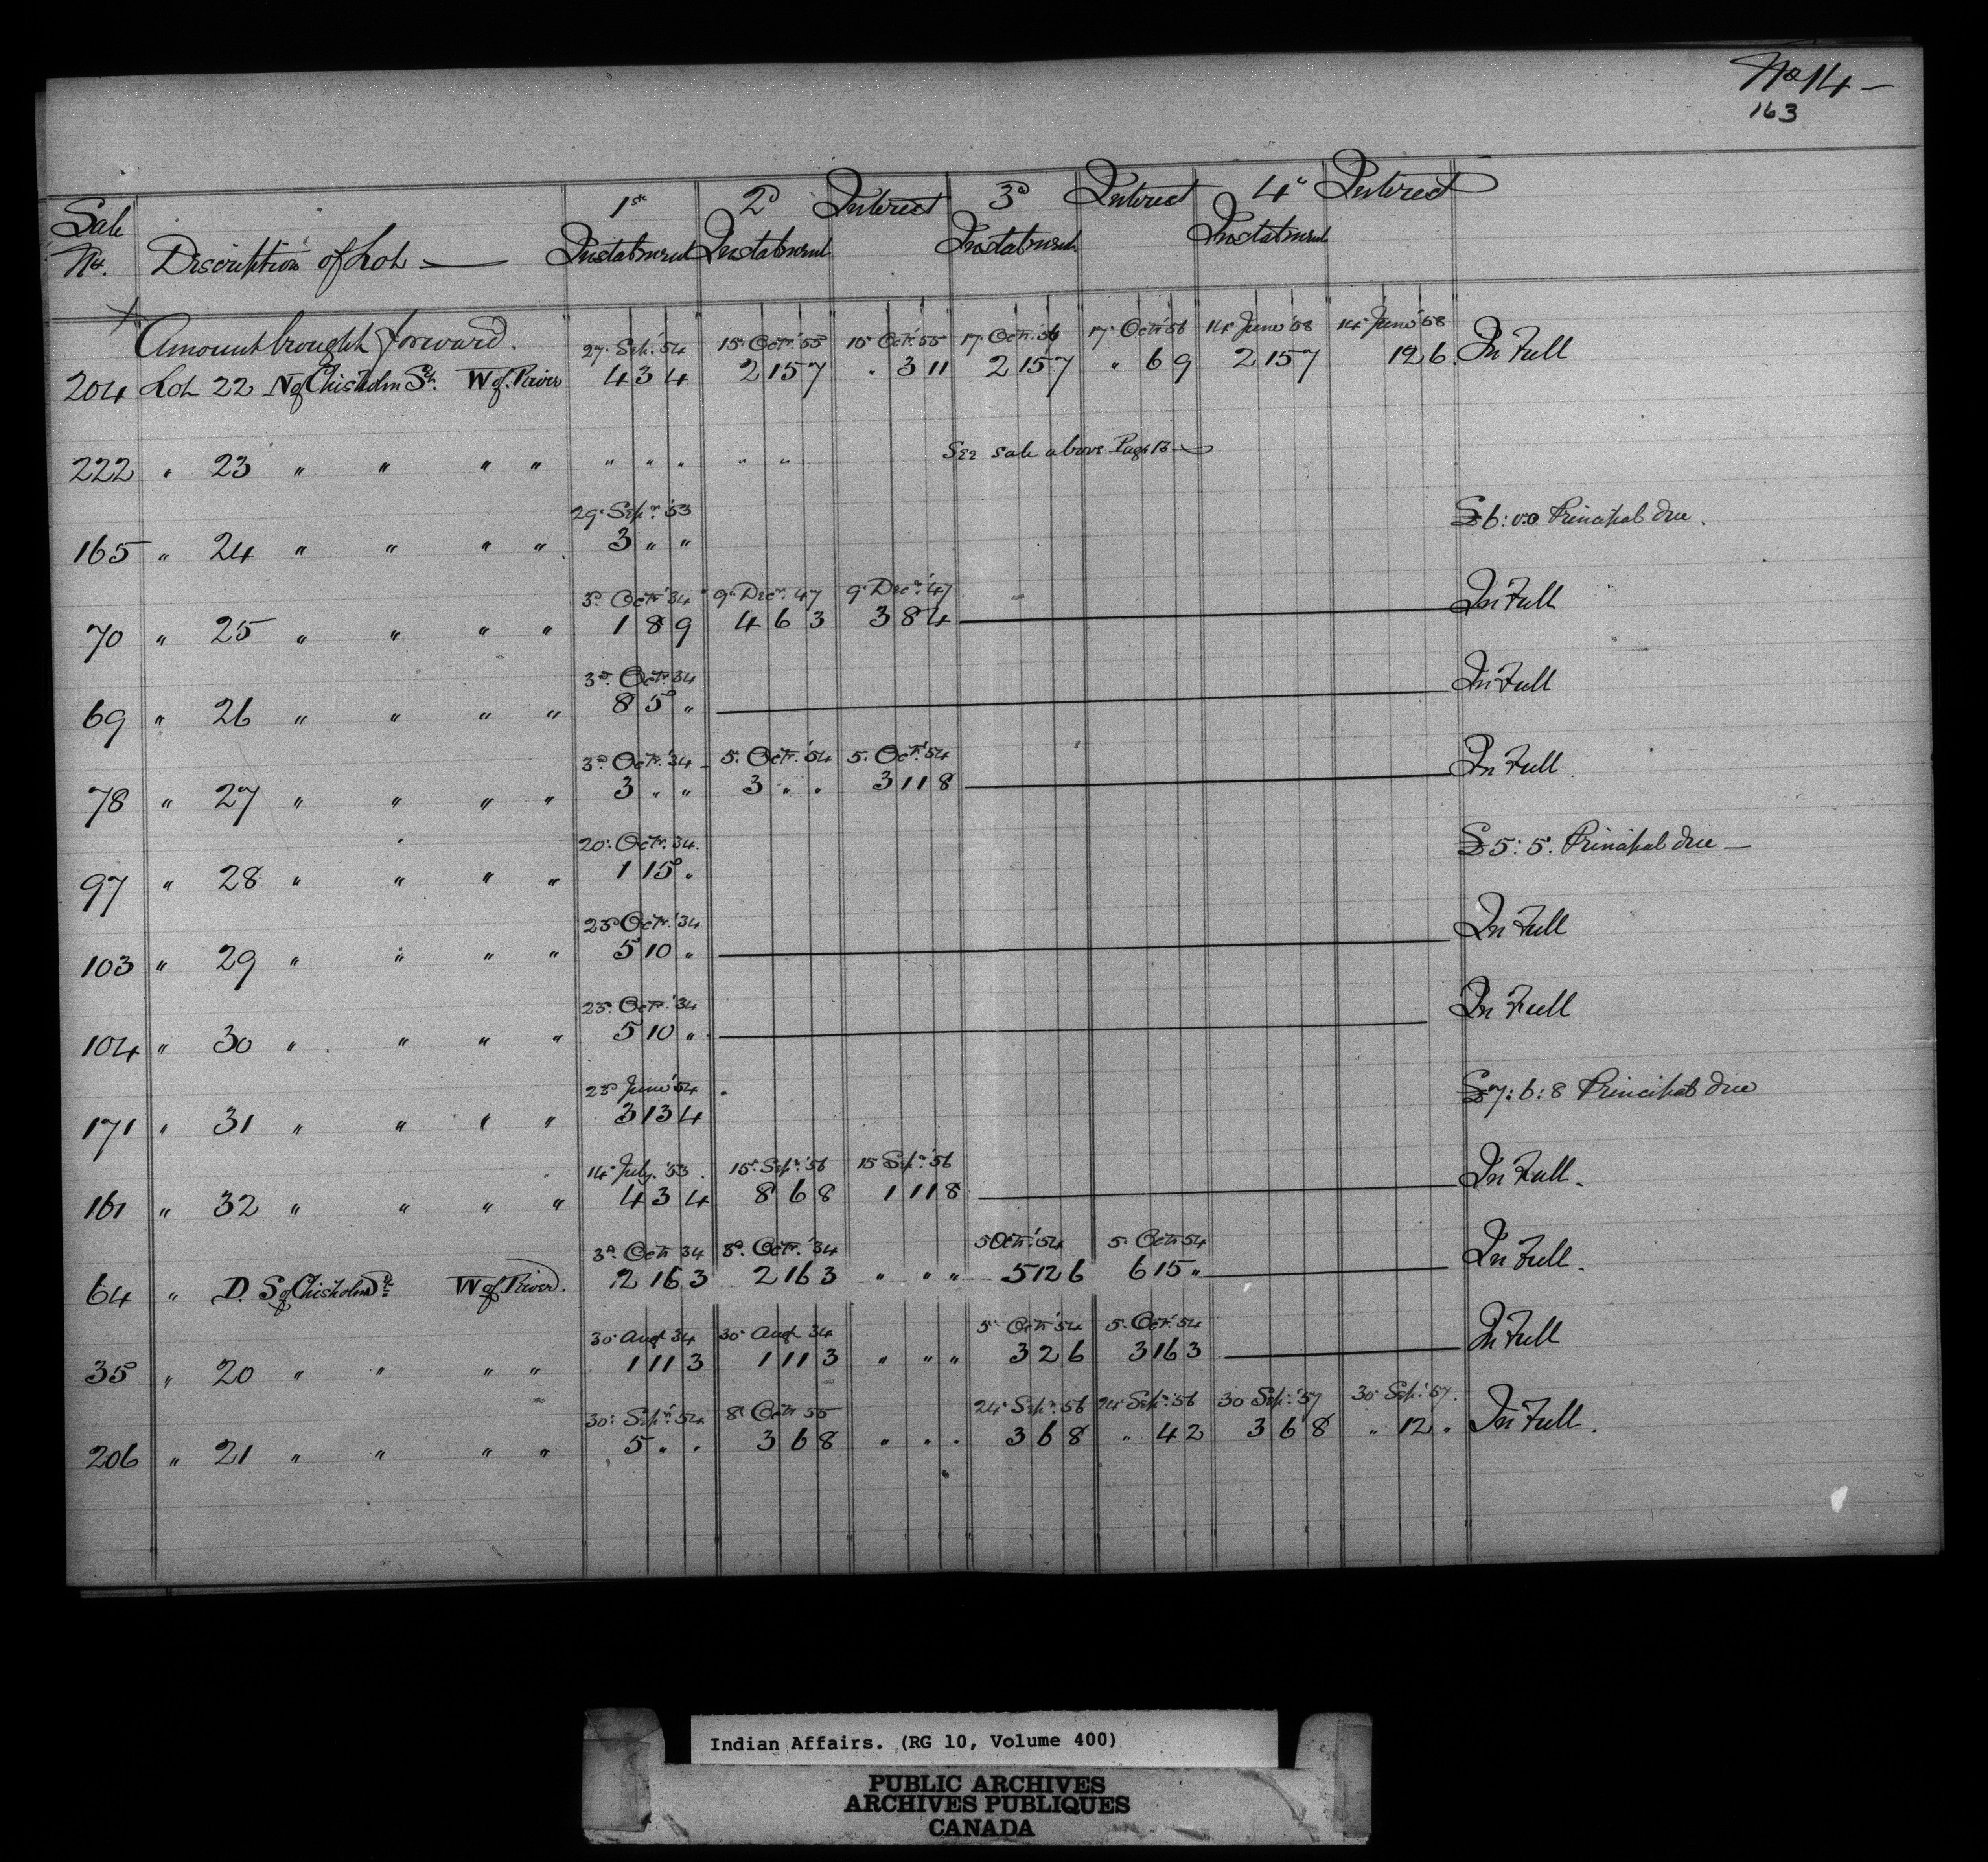 No 14 —
163
Sale No. Discription of Lot — 1st Instalment 2d Instalment Interest 3d Instalment Interest 4th Instalment Interest
Amount brought forward.
27. Sep. '54 15. Octr. '55 15 Octr. '55 17. Octr. '56 17. Octr '56 14 June '58 14 June '58
204 Lot 22 N of Chisholm St. W of River 4 3 4 2 15 7 . 3 11 2 15 7 " 6 9 2 15 7 12 6 In Full
222 " 23 " " " " " " " " " See sale above Page 13
29. Sepr. '53
165 " 24 " " " " 3 " " £6:0:0 Principal due.
3d. Octr '34 9th Decr. 47 9. Decr. '47
70 " 25 " " " " 1 8 9 4 6 3 3 8 4 In Full
3d. Octr. 34
69 " 26 " " " " 8 5 " In Full
3d. Octr. '34 5. Octr. '54 5. Octr. '54
78 " 27 " " " " 3 " " 3 " " 3 11 8 In Full.
20. Octr. 34.
97 " 28 " " " " 1 15 " £5:5. Principal due —
23d Octr. '34
103 " 29 " " " " 5 10 " In Full
23d. Octr. '34
104 " 30 " " " " 5 10 " In Full
23d June '54
171 " 31 " " " " 3 13 4 £7:6:8 Principal due
14. July. '53. 15. Sepr. '56 15 Sepr. '56
161 " 32 " " " " 4 3 4 8 6 8 1 11 8 In Full.
3d. Octr 34 3d. Octr. '34 5 Octr. '54 5. Octr 54
64 " D. S of Chisholm St. W of River. 2 16 3 2 16 3 " " " 5 12 6 6 15 " In Full.
30. Augt 34 30. Augt 34 5. Octr 54 5. Octr. 54
35 " 20 " " " " 1 11 3 1 11 3 " " " 3 2 6 3 16 3 In Full
30. Sepr. '54 8. Octr 55 24. Sepr. 56 24. Sepr. '56 30 Sep. '57 30. Sep. '57.
206 " 21 " " " " 5 " " 3 6 8 " " " 3 6 8 " 4 2 3 6 8 " 12 " In Full.
Indian Affairs. (RG 10, Volume 400)
PUBLIC ARCHIVES
ARCHIVES PUBLIQUES
CANADA